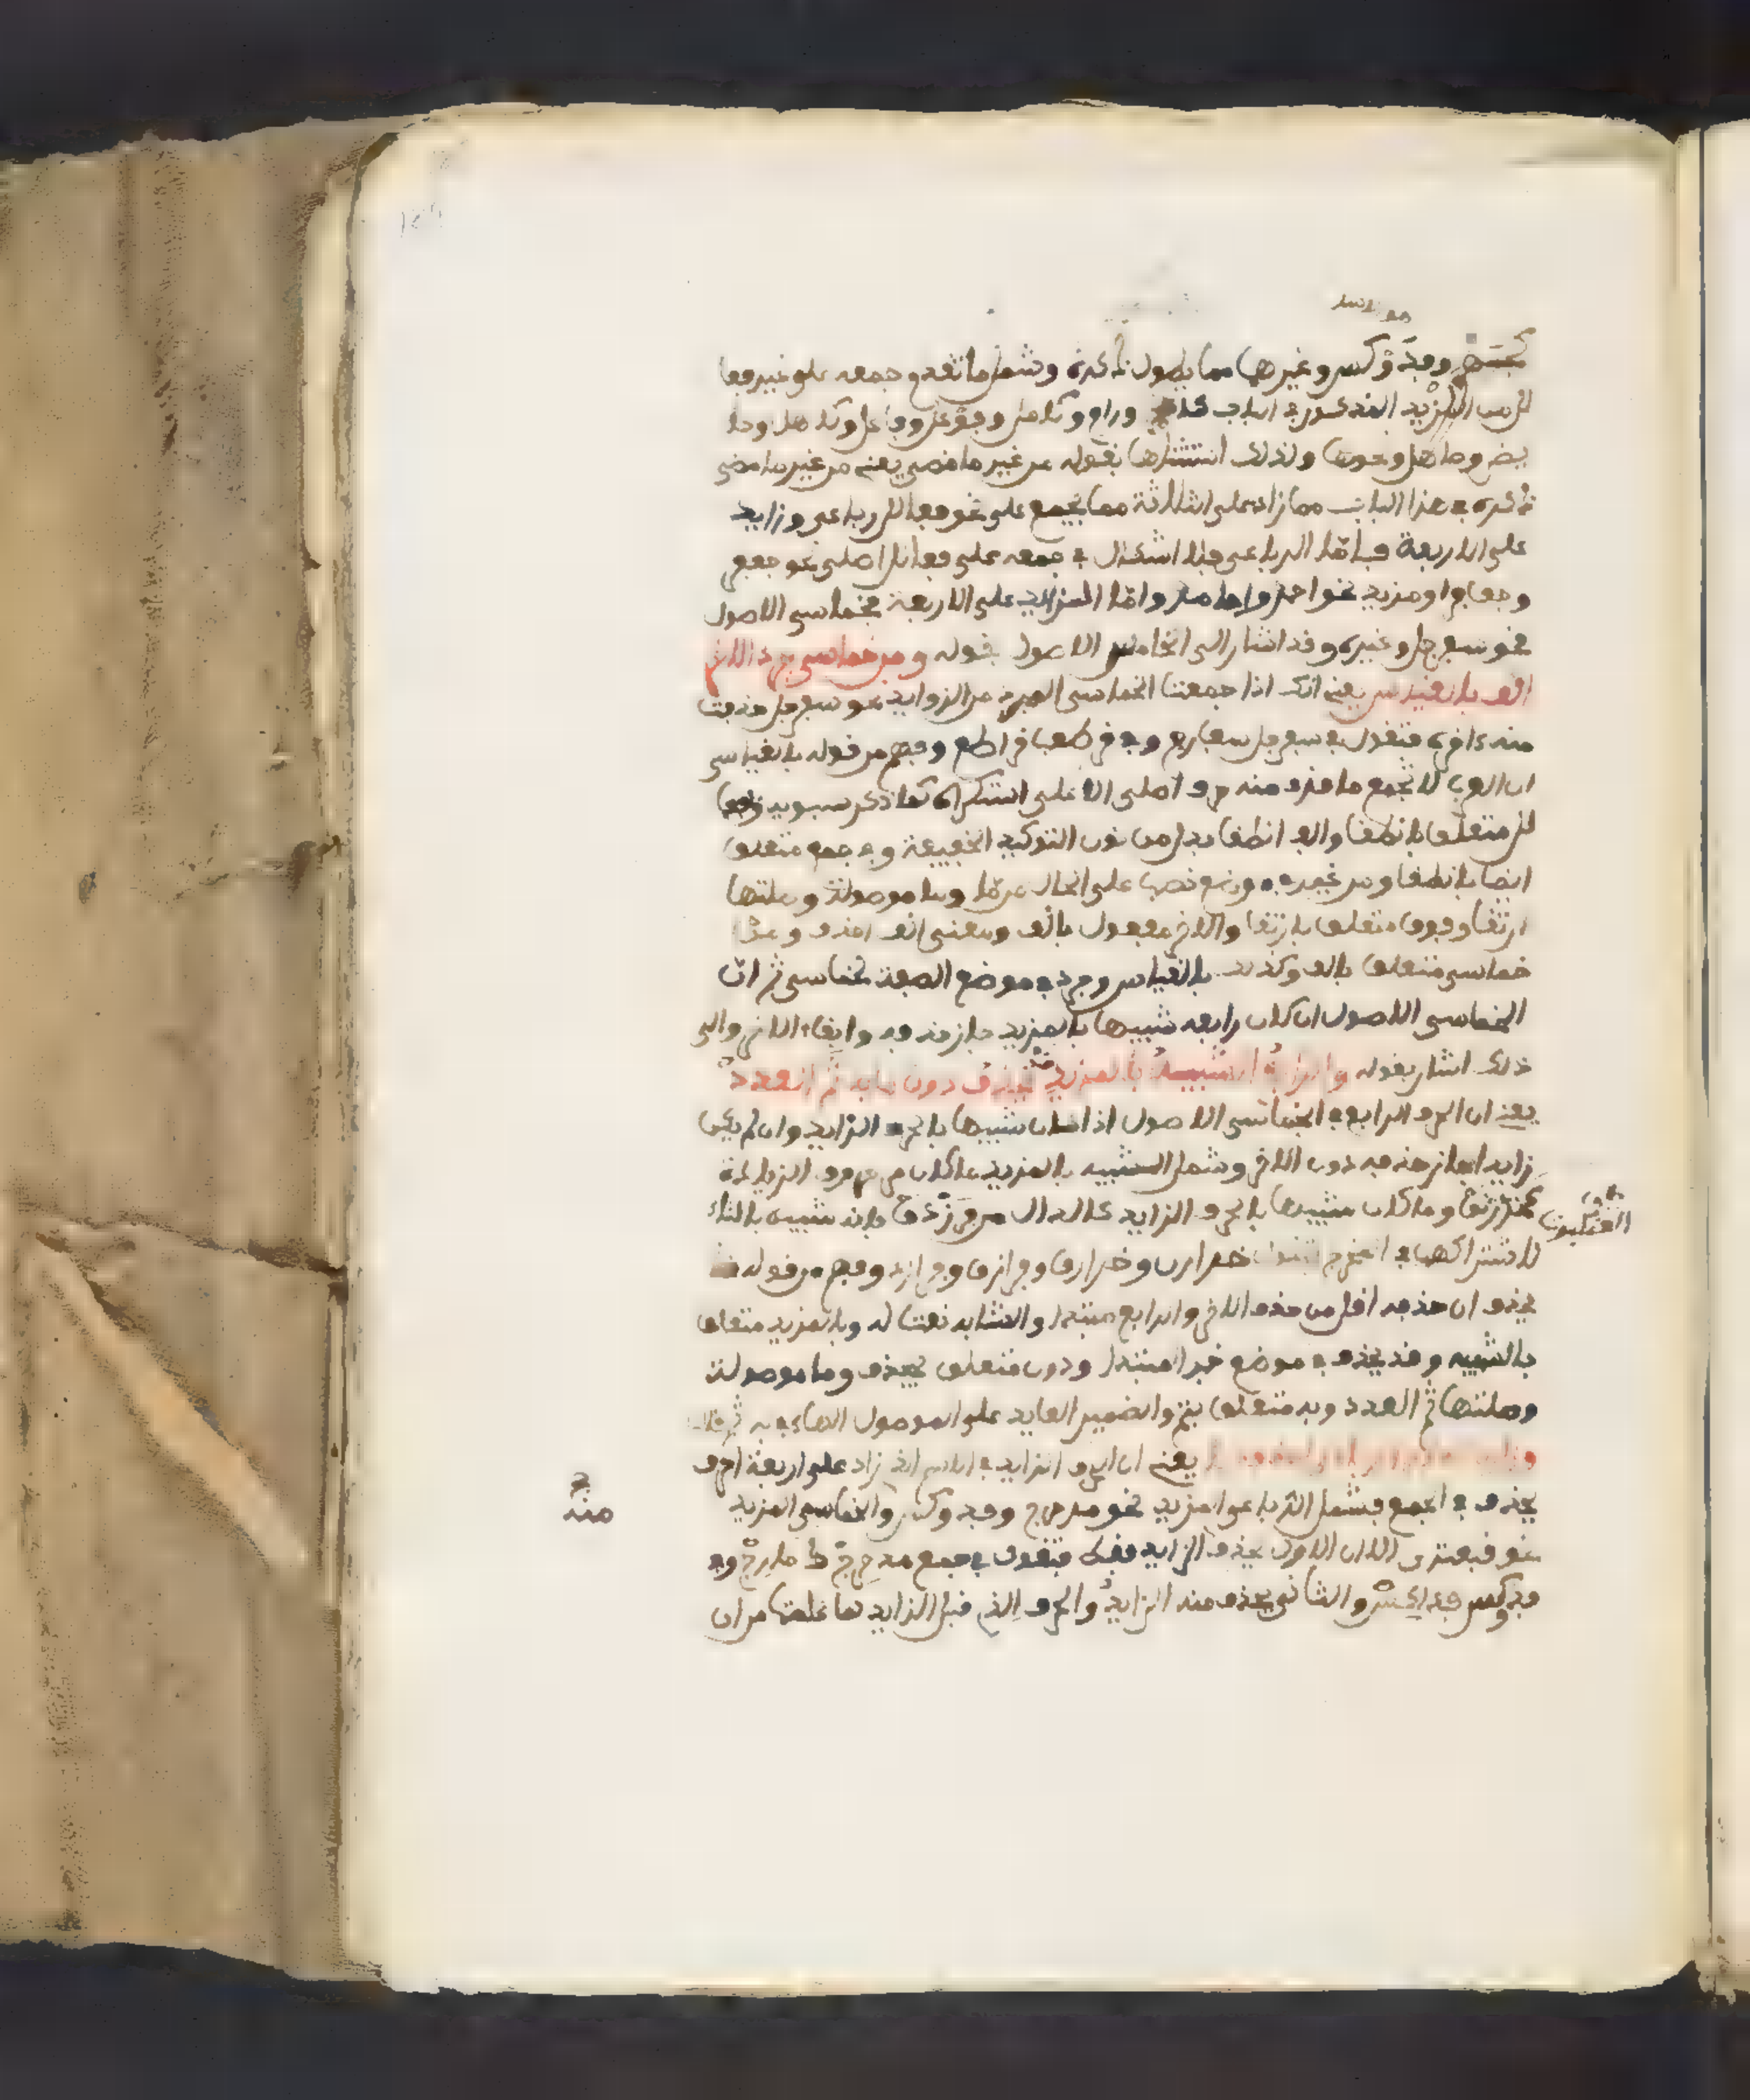 وفدوكس وغيرها مما يطول ذكره وشمل ما تقدم جمعه على غير فعا
لل من المزيد المذكور في الباب ورام وكامل وجوهر وفاعل وكاهل وحا
يض وصاهل ونحوها ولذلك استثناها بقوله من غير ما مضى يعني من غير ما مضى
ذكره في هذا الباب مما زاد على الثلاثة مما يجمع على نحو فعالل رباعي وزايد
على الاربعة فاما الرباعي فلا اشكال في جمعه على فعالل اصلي نحو جعفر
وجعافر او مزيد نحو احمد واحامد واما المزايد على الاربعة فخماسي الاصول
نحو سفرجل وغيره وقد اشار الى الخماسي الاصول بقوله ومن خماسي جرد الاخر
انف بالقياس يعني انك اذا جمعت الخماسي المجرد من الزوايد نحو سفرجل حذفت
منه اخره فتقول في سفرجل سفارج وفي قرطعب قراطع وفهم من قوله بالقياس
ان العرب لا تجمع ما حذف منه حرف اصلي الا على استكراه كما ذكر سيبويه وفعا
لل متعلق بانطقا والف انطقا بدل من نون التوكيد الخفيفة وفي جمع متعلق
ايضا بانطقا ومن غير في موضع نصب على الحال وما موصولة وصلتها
ارتقا وفوق متعلق بارتقا والاخر مفعول بانف ومعنى انف احذف ومن
خماسي متعلق بانف وكذلك بالقياس وجرد في موضع الصفة لخماسي ثم ان
الخماسي الاصول ان كان رابعه شبيها بالمزيد جاز حذفه وابقاء الاخر والى
ذلك اشار بقوله والرابع الشبيه بالمزيد قد يحذف دون ما به تم العدد
يعني ان الحرف الرابع في الخماسي الاصول اذا كان شبيها بالحرف الزايد وان لم يكن
زايدا جاز حذفه دون الاخر وشمل الشبيه بالمزيد ما كان من حروف الزيادة
كخدرنق وما كان شبيها بالحرف الزايد كالدال من فرزدق فانه شبيه بالتاء
لاشتراكهما في المخرج فتقول خدارن وخدارق وفرازق وفرازد وفهم من قوله قد
يحذف ان حذفه اقل من حذف الاخر والرابع مبتدا والشبيه نعت له وبالمزيد متعلق
بالشبيه وقد يحذف في موضع خبر المبتدا ودون متعلق بيحذف وما موصولة
وصلتها تم العدد وبه متعلق بتم والضمير العايد على الموصول الهاء في به ثم قال
يعني ان الحرف الزايد في الاسم الذي زاد على اربعة احرف
يحذف في الجمع فشمل الرباعي المزيد نحو مدحرج وفدوكس والخماسي المزيد
نحو قبعثرى الا ان الاول يحذف الزايد فقط فتقول في جمع مدحرج دحارج وفي
فدوكس فداكس والثاني يحذف منه الزايد والحرف الذي قبل الزايد لما علمت من ان
منه